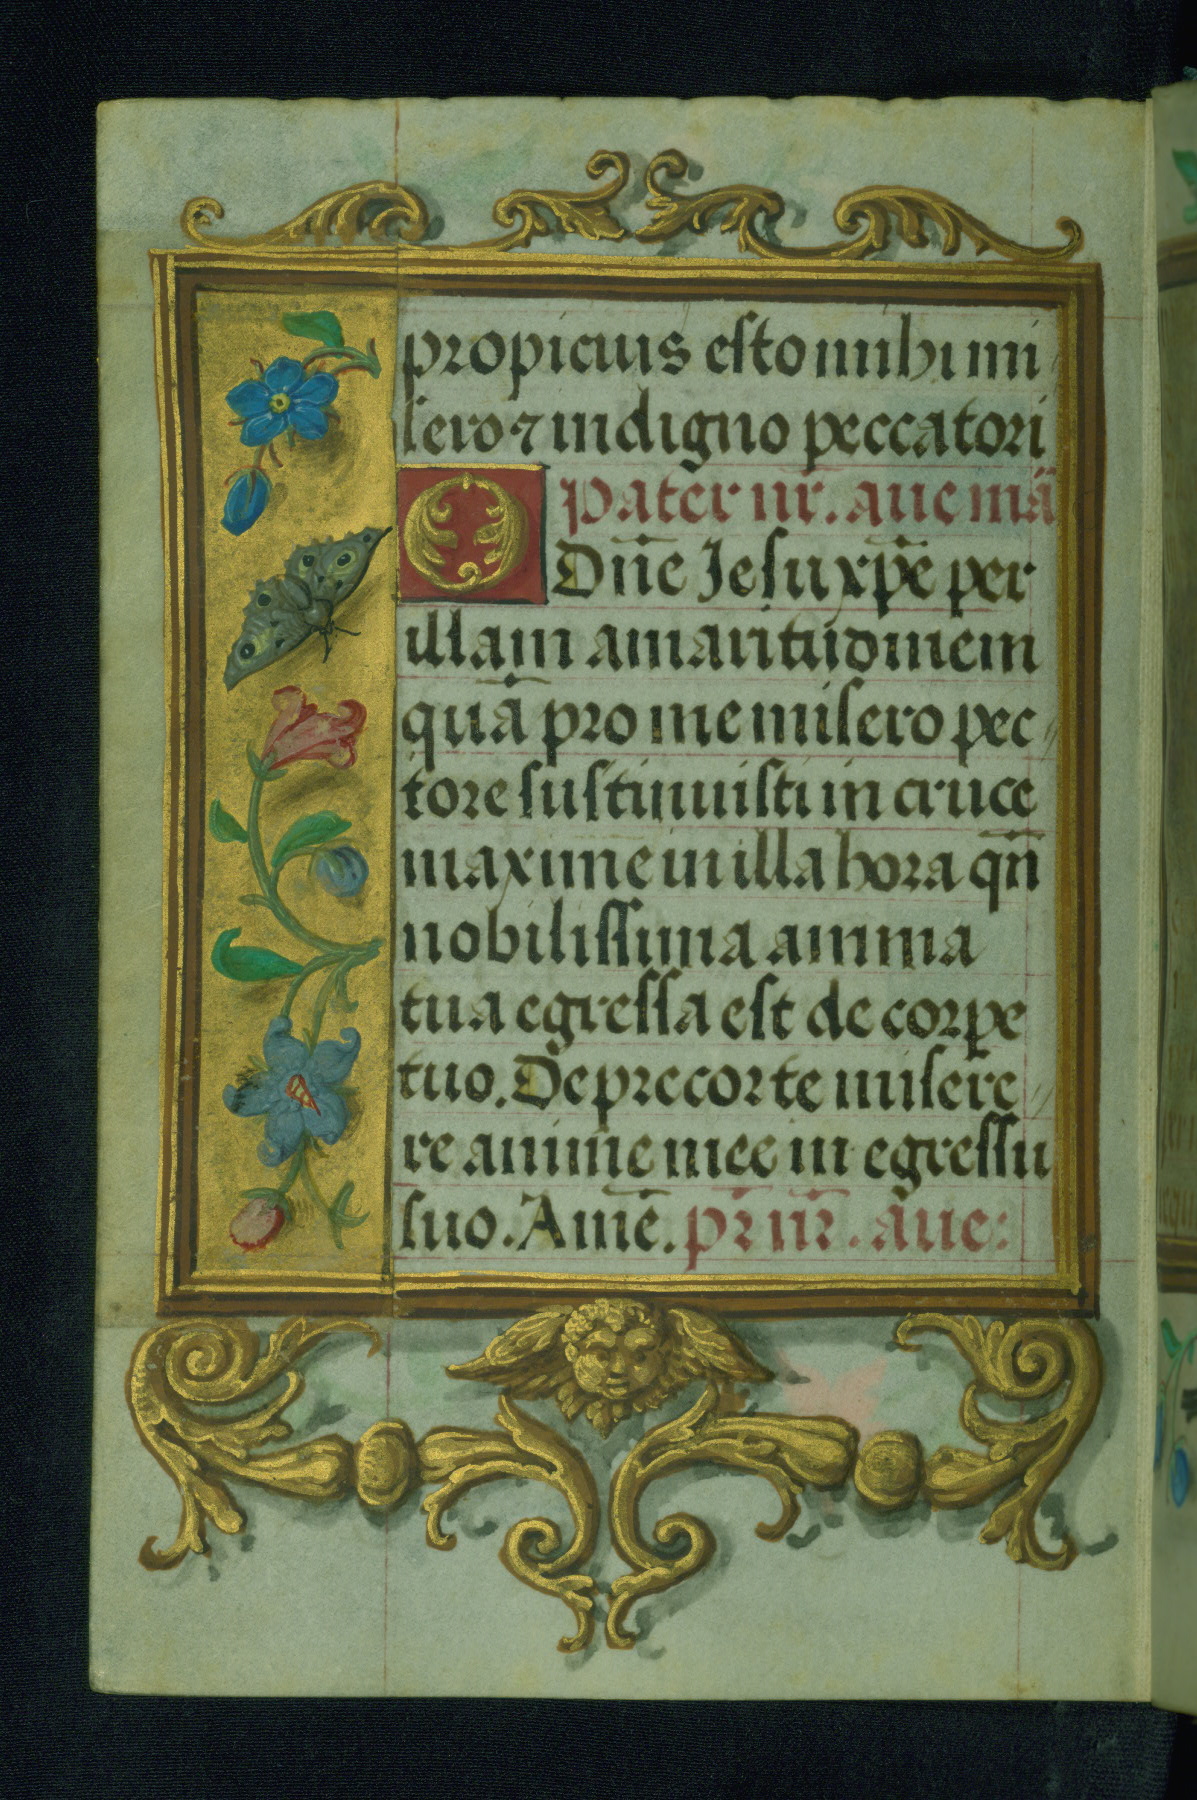 propicius esto mihi mi
sero ⁊ indigno peccatori
Pater nr̄. aue mā
O Dn̄e Jesu xp̄e per
illam amaritudinem
quā pro me misero pec
tore sustinuisti in cruce
maxime in illa hora qn̄
nobilissima anima
tua egressa est de corpe
tuo. Deprecor te misere
re anime mee in egressu
suo. Amē. pr̄ nr̄. aue: